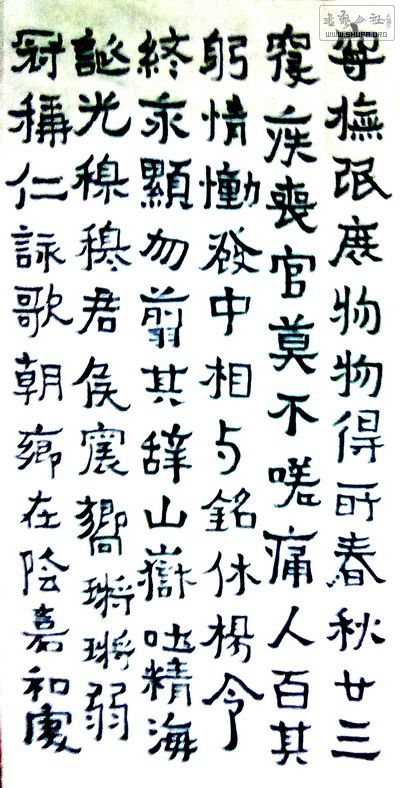 寧撫氓庶物物得所春秋廿三
寢疾喪官莫不嗟痛人百其
躬情慟發中相与銘休楊令
終永顯勿翦其辭山嶽吐精海
誕光穆穆君侯震嚮鏘鏘弱
冠稱仁詠歌朝鄉在陰嘉和處
書藝公社
WWW.SHUFA.ORG